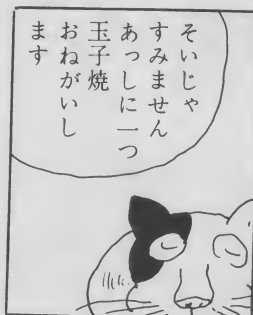 そいじゃ
すみません
あっしに一つ
玉子焼
おねがいし
ます